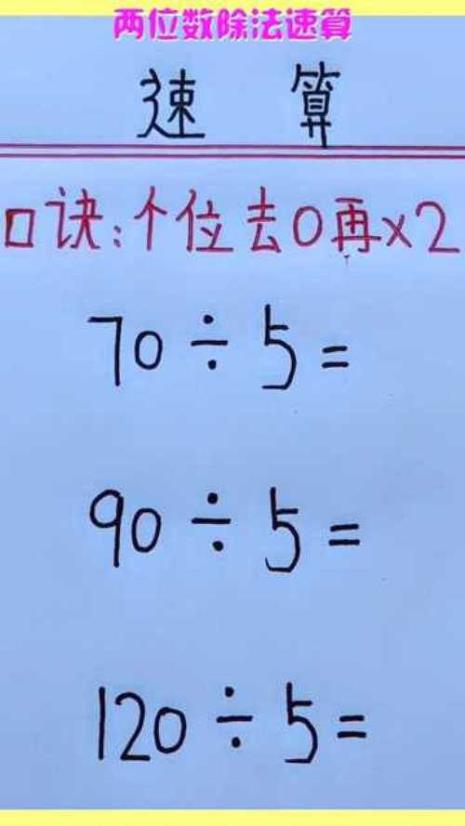 两位数除法速算
速 算
口诀:个位去0再×2
70÷5=
90÷5=
120÷5=